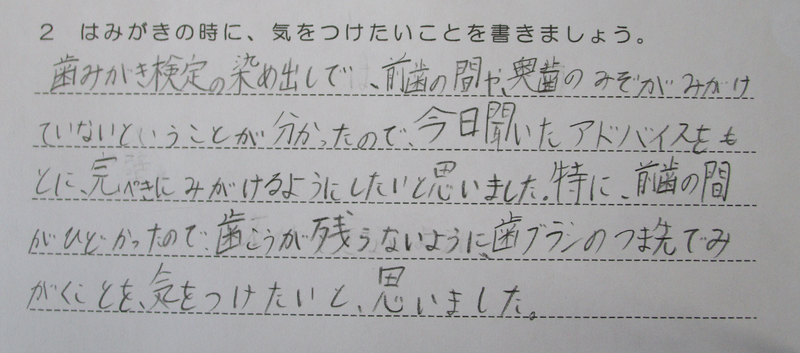 2 はみがきの時に、気をつけたいことを書きましょう。
歯みがき検定の染め出しで、前歯の間や、奥歯のみぞがみがけ
ていないということが分かったので、今日聞いたアドバイスをも
とに、完ぺきにみがけるようにしたいと思いました。特に、前歯の間
がひどかったので、歯こうが残らないように、歯ブラシのつま先でみ
がくことを、気をつけたいと、思いました。